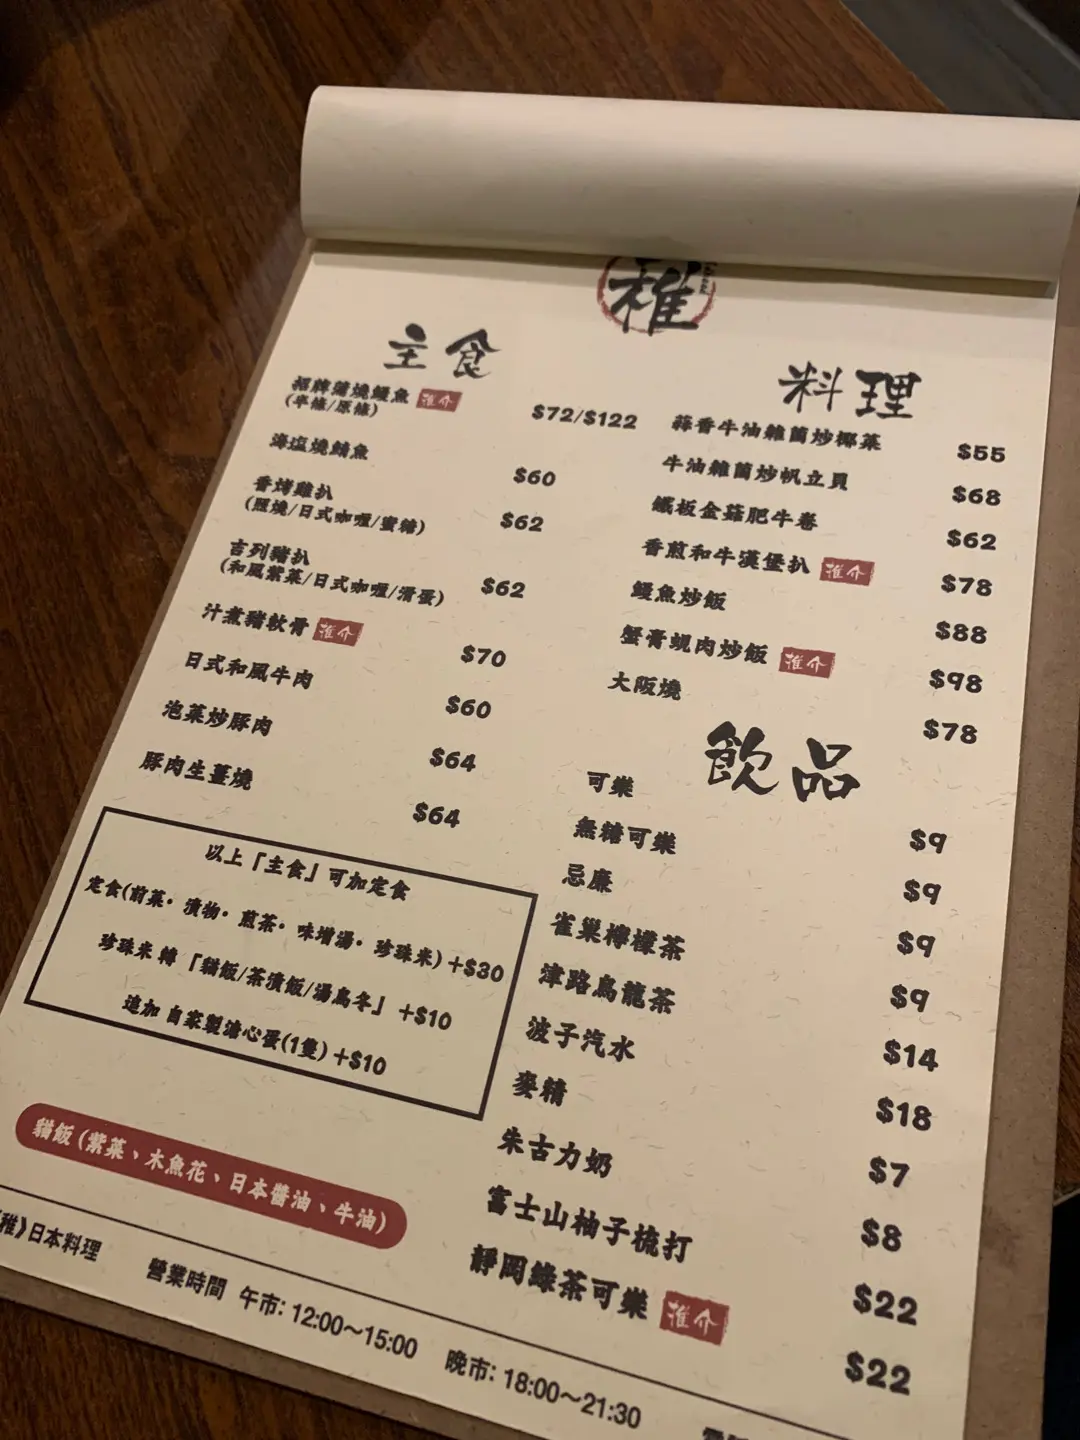 稚
主食
招牌蒲燒鰻魚 推介
(半條/原條) $72/$122
海塩燒鯖魚 $60
香烤雞扒
(照燒/日式咖喱/蜜糖) $62
吉列豬扒
(和風紫菜/日式咖喱/滑蛋) $62
汁煮豬軟骨 推介 $70
日式和風牛肉 $60
泡菜炒豚肉 $64
豚肉生薑燒 $64
以上「主食」可加定食
定食(前菜·漬物·煎茶·味增湯·珍珠米)+$30
珍珠米 轉「貓飯/茶漬飯/湯烏冬」 +$10
追加 自家製溏心蛋(1隻)+$10
貓飯 (紫菜、木魚花、日本醬油、牛油)
料理
蒜香牛油雜菌炒椰菜 $55
牛油雜菌炒帆立貝 $68
鐵板金菇肥牛卷 $62
香煎和牛漢堡扒 推介 $78
鰻魚炒飯 $88
蟹膏蜆肉炒飯 推介 $98
大阪燒 $78
飲品
可樂 $9
無糖可樂 $9
忌廉 $9
雀巢檸檬茶 $9
津路烏龍茶 $14
波子汽水 $18
麥精 $7
朱古力奶 $8
富士山柚子梳打 $22
靜岡綠茶可樂 推介 $22
稚》日本料理 營業時間 午市: 12:00～15:00 晚市: 18:00～21:30